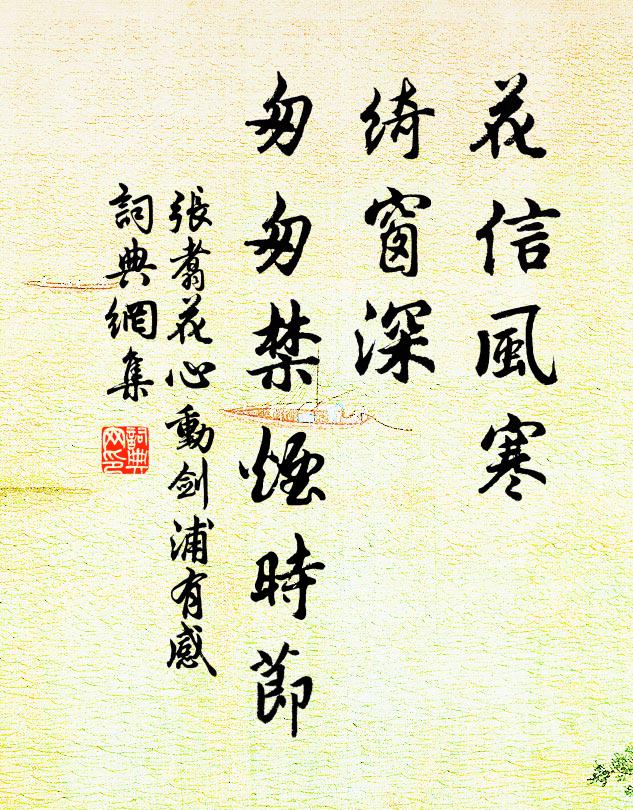 花信風寒
綺窗深
匆匆禁煙時節
張翥花心動劍浦有感
詞典網集
詞典網印